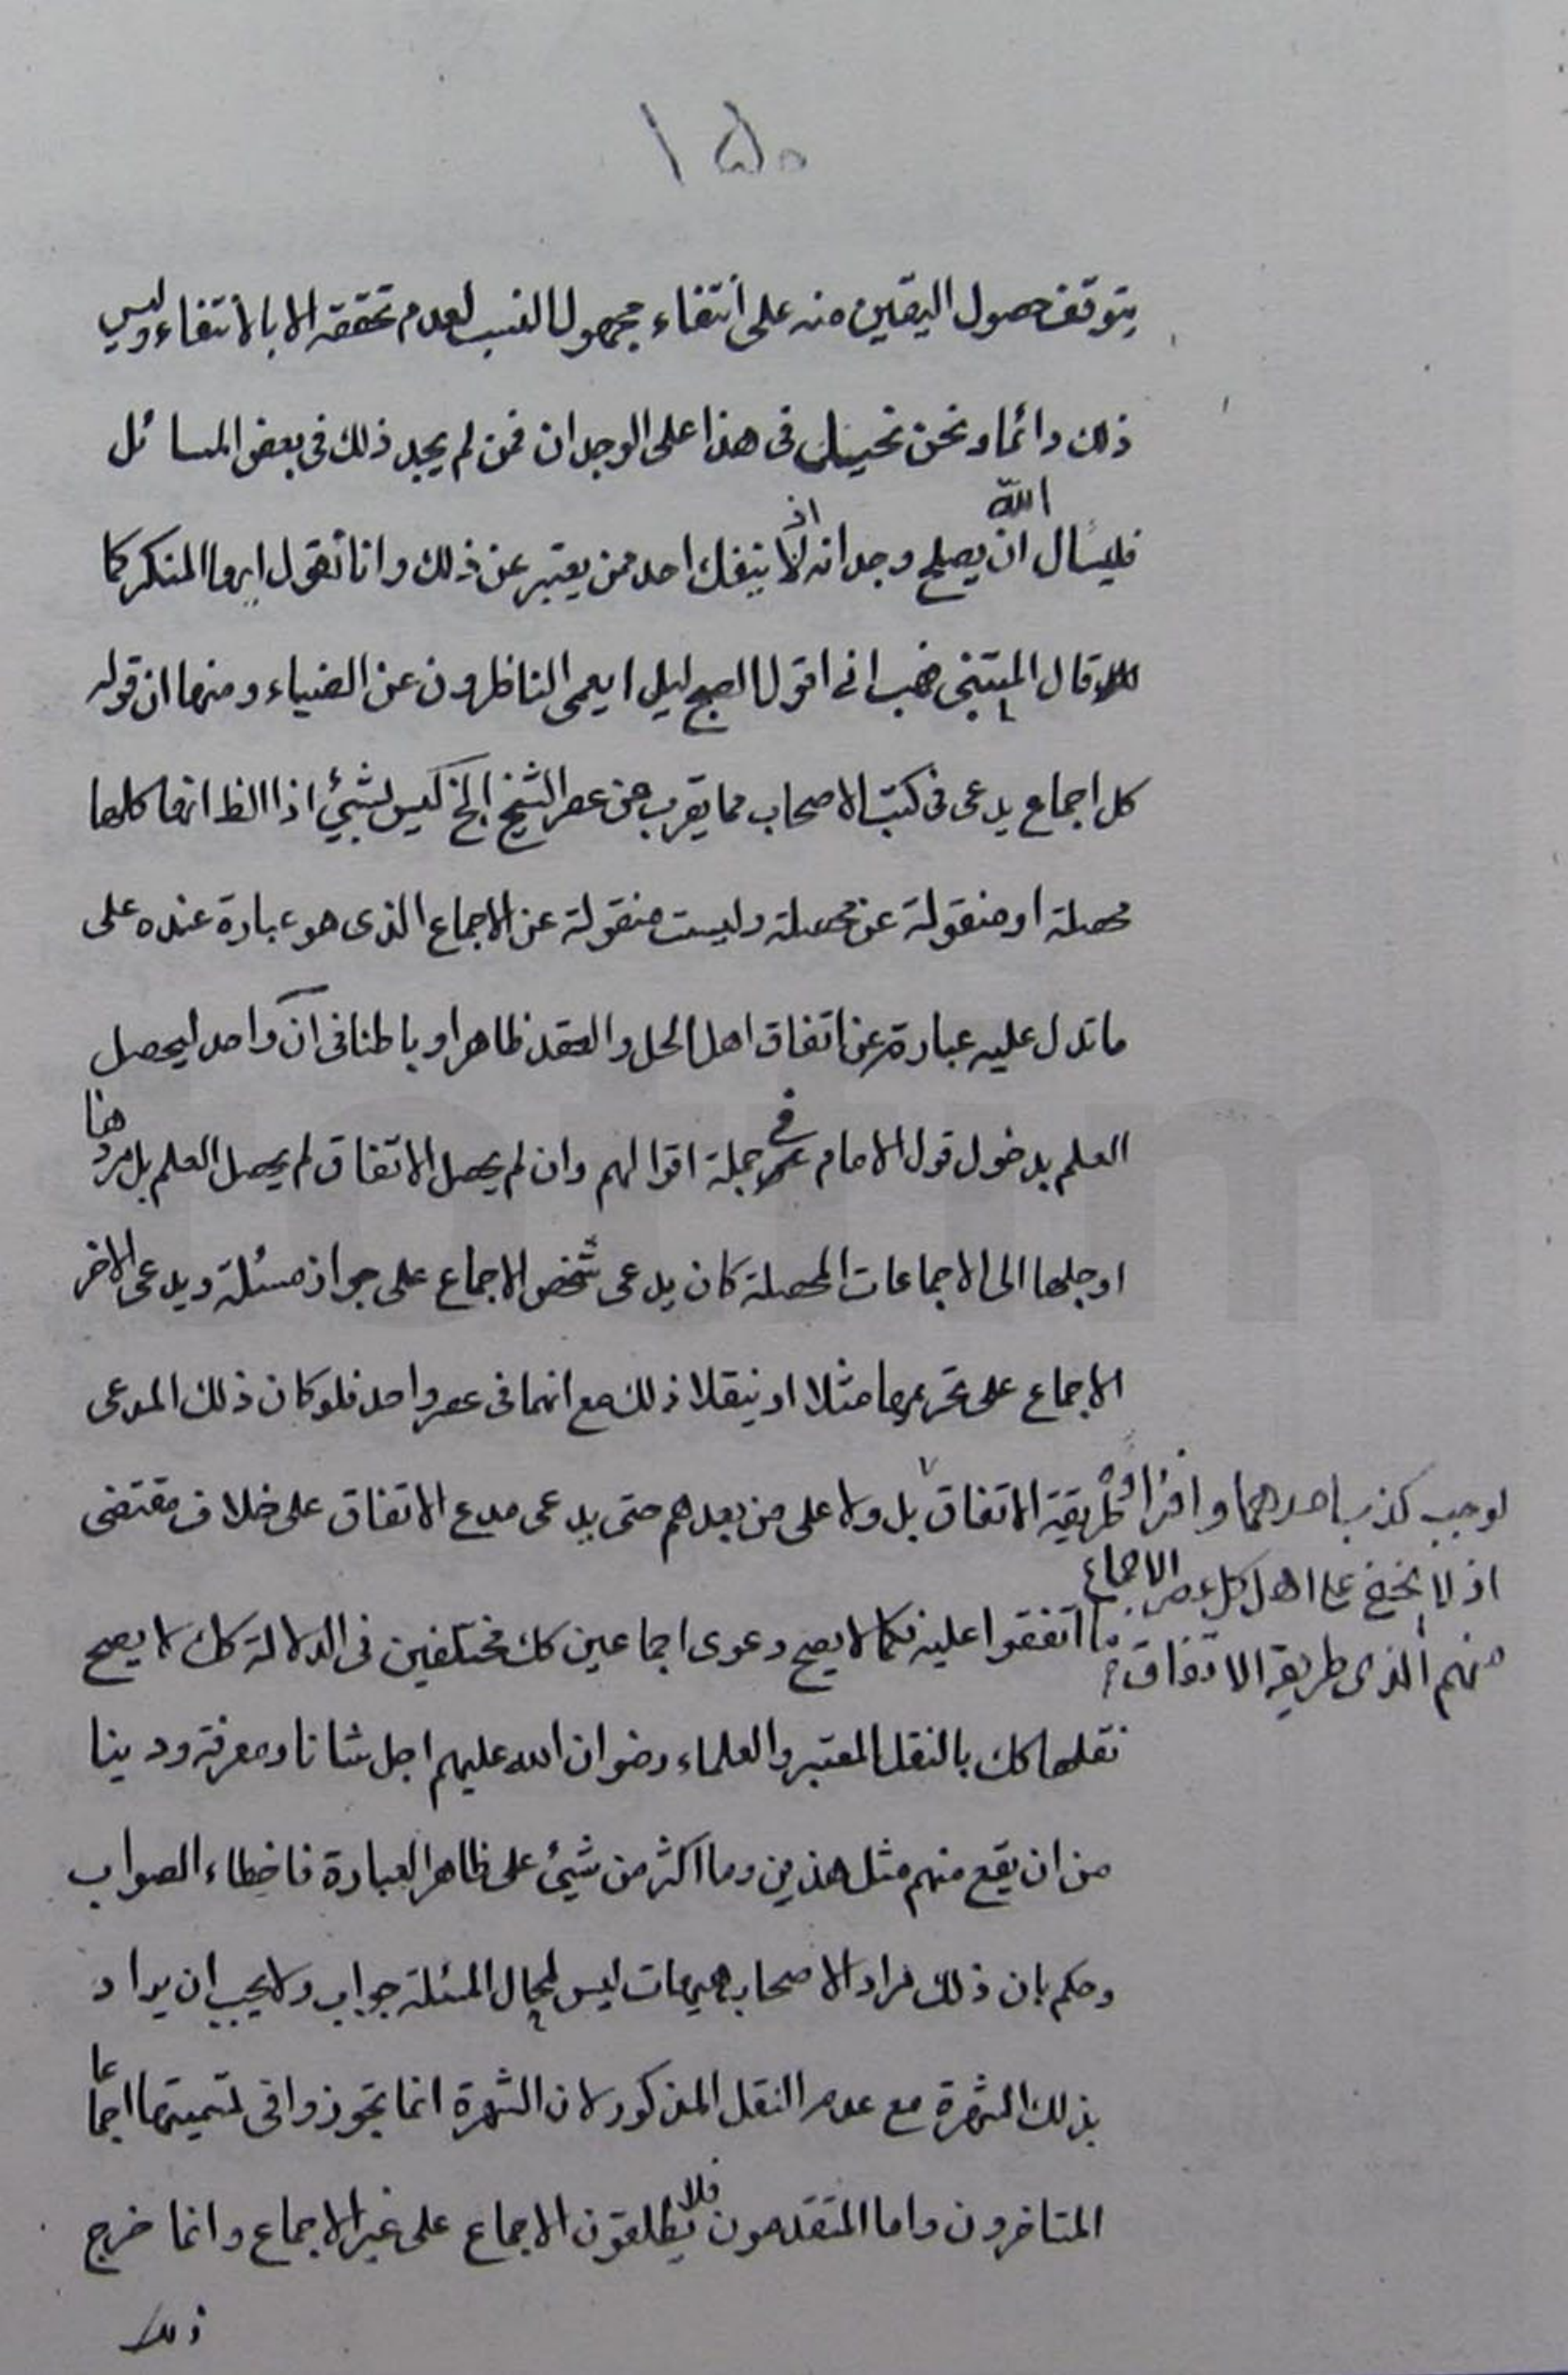 ١٥٠
يتوقف حصول اليقين منه على انتفاء مجهول النسب لعدم تحققه الا بالانتفاء وليس
ذلك دائما ونحن نحيلك في هذا على الوجدان فمن لم يجد ذلك في بعض المسائل
فليسأل الله ان يصلح وجدانه اذ لا ينفك احد ممن يعتبر عن ذلك وانا نقول ايها المنكر كما
قال المتنبى فهب انى اقول الصبح ليل ايعمى الناظرون عن الضياء ومنها ان قوله
كل اجماع يدعى فى كتب الاصحاب مما يقرب من عصر الشيخ الخ ليس بشيئ اذ الظ انها كلها
محصلة او منقولة عن محصلة وليست منقولة عن الاجماع الذى هو عبارة عنده على
ما تدل عليه عبارته عن اتفاق اهل الحل والعقد ظاهرا وباطنا فى آن واحد ليحصل
العلم بدخول قول الامام ع فى جملة اقوالهم وان لم يحصل الاتفاق لم يحصل العلم بل مردها
او جلها الى الاجماعات المحصلة كان يدعى شخص الاجماع على جواز مسئلة ويدعى الاخر
الاجماع على تحريمها مثلا او ينقلا ذلك مع انهما فى عصر واحد فلو كان ذلك المدعى
طريقة الاتفاق بل ولا على من بعدهم حتى يدعى مدع الاتفاق على خلاف مقتضى
لوجب كذب احدهما وافتراؤه
اذ لا يخفى على اهل كل عصر الاجماع
منهم الذى طريقه الاتفاق
ما اتفقوا عليه فكما لا يصح دعوى اجماعين كك مختلفين فى الدلالة كك لا يصح
نقلهما كك بالنقل المعتبر والعلماء رضوان الله عليهم اجل شانا ومعرفة ودينا
من ان يقع منهم مثل هذين وما اكثر من شيئ على ظاهر العبارة فاخطاء الصواب
وحكم بان ذلك مراد الاصحاب هيهات ليس لمحال المسئلة جواب ولا يجب ان يراد
بذلك الشهرة مع عدم النقل المذكور لان الشهرة انما تجوز وا فى تسميتها اجماعا
المتاخرون واما المتقدمون فلا يطلقون الاجماع على غير الاجماع وانما خرج
ذلك